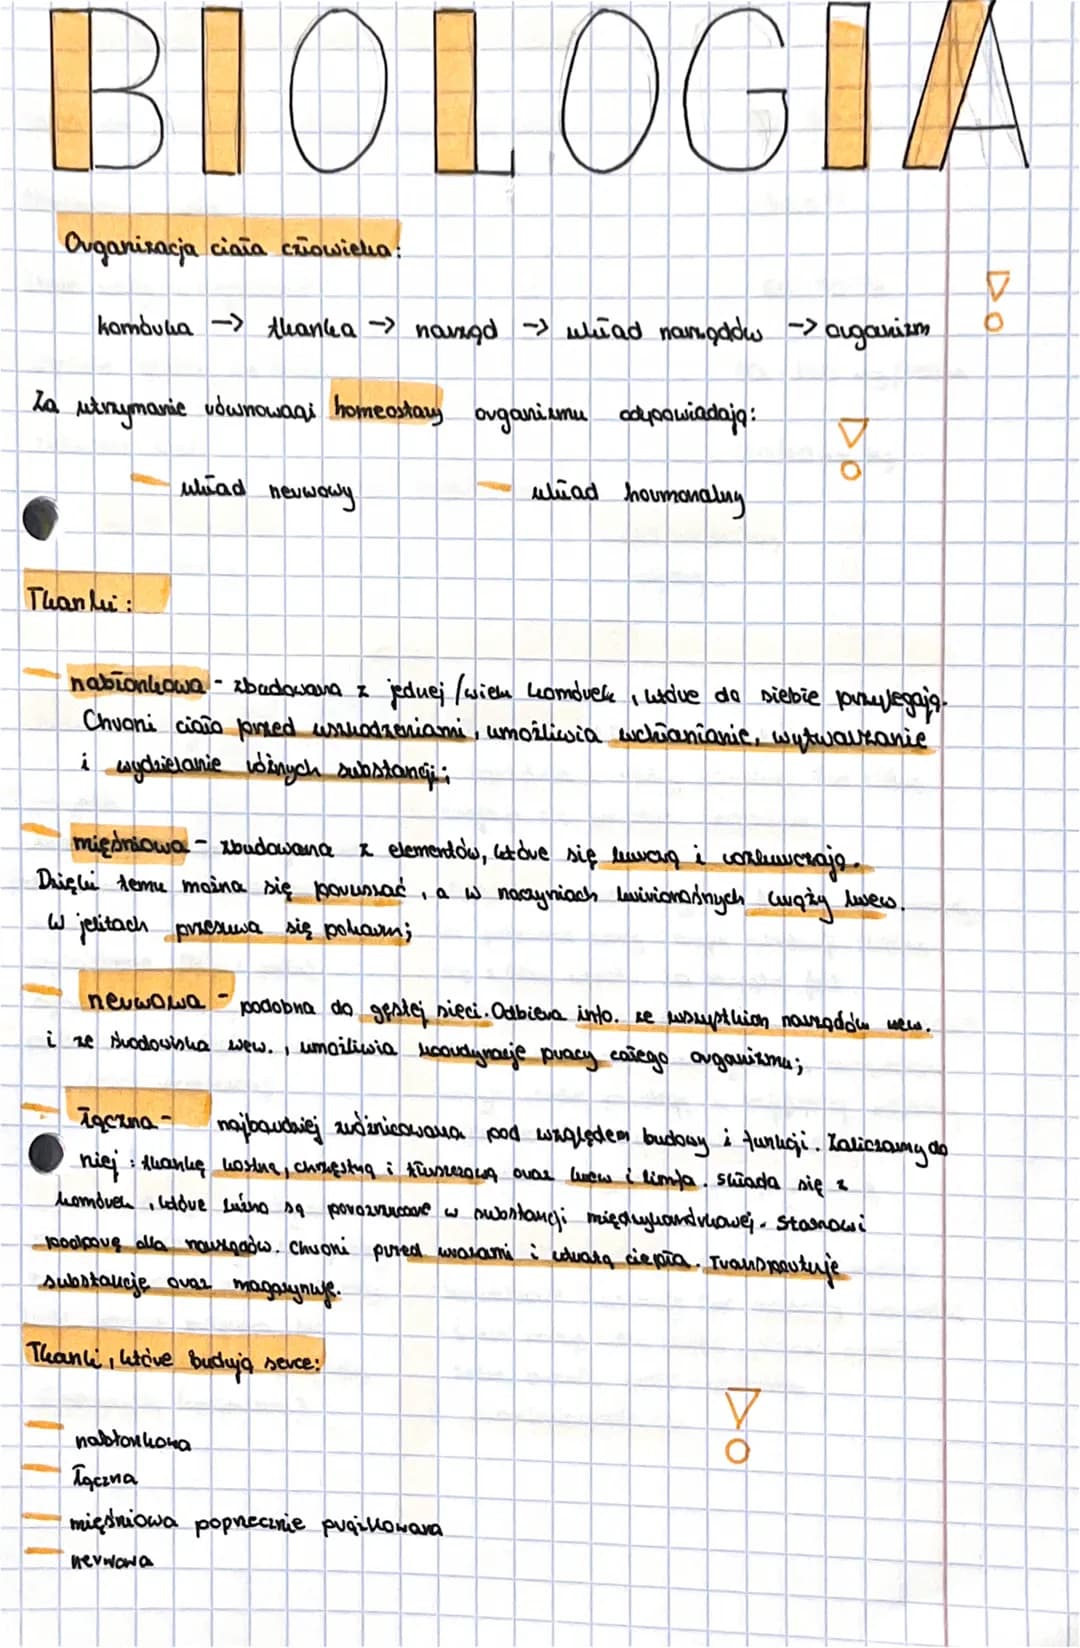 BIOLOGIA
Organizacja ciała człowieka:
komórka -> tkanka -> narząd -> układ narządów -> organizm
Za utrzymanie równowagi homeostazy organizmu odpowiadają:
- układ nerwowy - układ hormonalny
Tkanki:
- nabłonkowa - zbudowana z jednej/wielu komórek, które do siebie przylegają.
Chroni ciało przed uszkodzeniami, umożliwia wchłanianie, wytwarzanie
i wydzielanie różnych substancji;
- mięśniowa - zbudowana z elementów, które się kurczą i rozkurczają.
Dzięki temu można się poruszać, a w naczyniach krwionośnych krąży krew.
W jelitach przesuwa się pokarm;
- nerwowa - podobna do gęstej sieci. Odbiera info. ze wszystkich narządów wew.
i ze środowiska wew., umożliwia koordynację pracy całego organizmu;
- łączna - najbardziej zróżnicowana pod względem budowy i funkcji. Zaliczamy do
niej: tkankę kostną, chrzęstną i tłuszczową oraz krew i limfa. Składa się z
komórek, które luźno są porozrzucane w substancji międzykomórkowej. Stanowi
podporę dla narządów. Chroni przed urazami i utratą ciepła. Transportuje
substancje oraz magazynuje.
Tkanki, które budują serce:
- nabłonkowa
- łączna
- mięśniowa poprzecznie prążkowana
- nerwowa